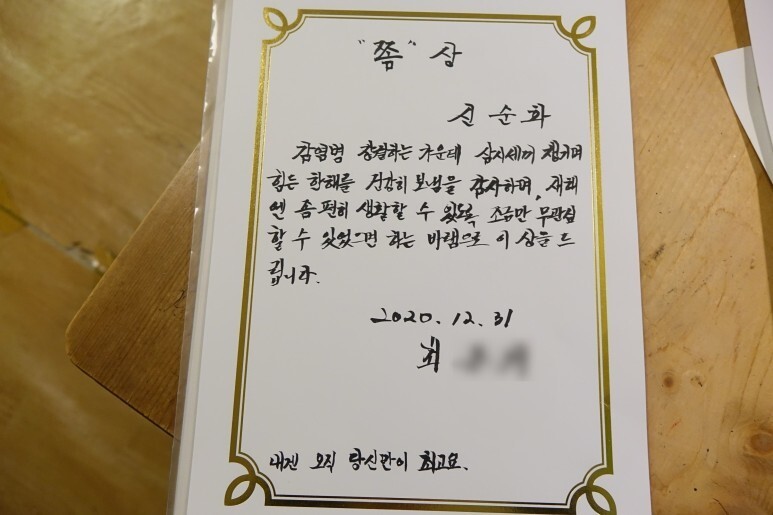 "쫌" 상
신순화
감염병 창궐하는 가운데 삼시세끼 챙기며
힘든 한해를 건강히 보냄을 감사하며, 새해
엔 좀 편히 생활할 수 있도록 조금만 무관심
할 수 있었으면 하는 바램으로 이 상을 드
립니다.
2020. 12. 31
최
내겐 오직 당신만이 최고요.